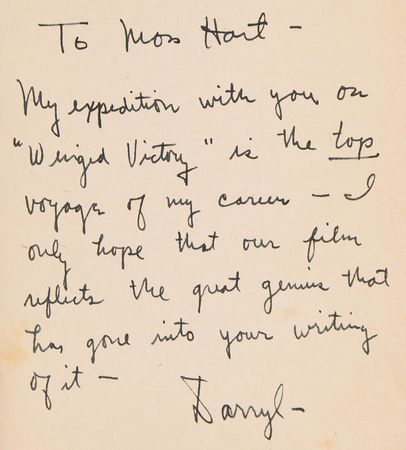 To Moss Hart –
My expedition with you on
"Winged Victory" is the top
voyage of my career – I
only hope that our film
reflects the great genius that
has gone into your writing
of it –
Darryl –